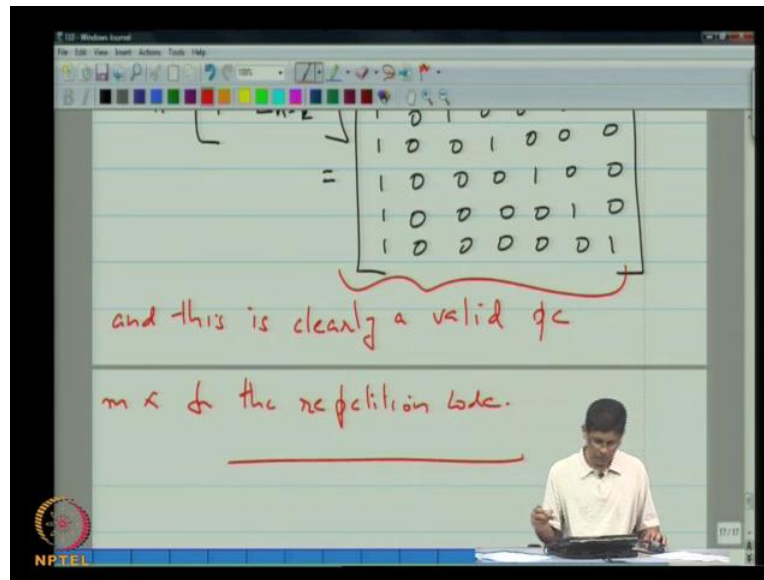 133 - Windows Journal
File Edit View Insert Actions Tools Help
100%
B I
1 0 1 0 0
1 0 0 1 0 0 0
= 1 0 0 0 1 0 0
1 0 0 0 0 1 0
1 0 0 0 0 0 1
and this is clearly a valid pc
mx for the repetition code.
17/17
NPTEL